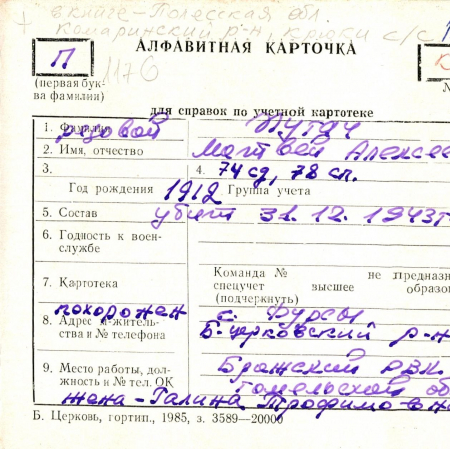 в книге - Полесская обл.
Комаринский р-н, Крюки с/с
П
1176
АЛФАВИТНАЯ КАРТОЧКА
(первая бук-
ва фамилии)
для справок по учетной картотеке
1. Фамилия рядовой Пугач
2. Имя, отчество Матвей Алексее
3. 4. 74 сд, 78 сп.
Год рождения 1912 Группа учета
5. Состав убит 31.12.1943г
6. Годность к воен-
службе
7. Картотека
Команда № не предназн
спецучет высшее образо
(подчеркнуть)
похоронен с. Фурсы
8. Адрес м-житель-
ства и № телефона
Б-Церковский р-н
9. Место работы, дол-
жность и № тел. ОК
Бражский РВК
Гомельской об
жена - Галина Трофимовна
Б. Церковь, гортип., 1985, з. 3589—20000